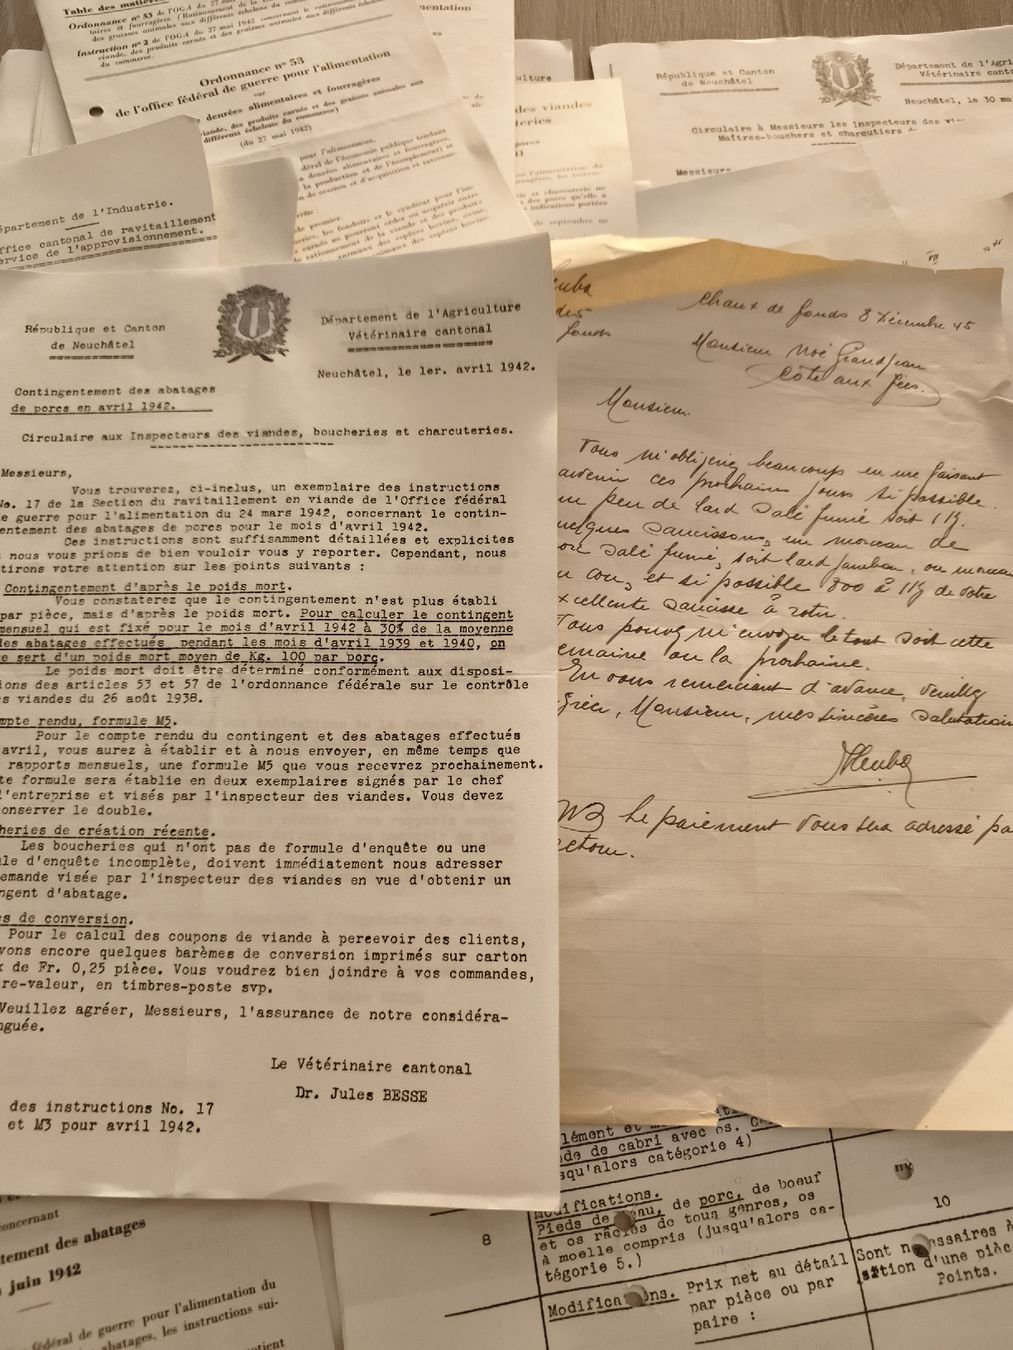 Table des matières
Ordonnance nº 53 de l'OGA du 27 mai
Instruction nº 2 de l'OGA du 27 mai 1942 concernant le
viande, des produits carnés et des graisses animales aux différents échelons
du commerce.
Ordonnance nº 53
de l'office fédéral de guerre pour l'alimentation
sur
denrées alimentaires et fourragères
viande, des produits carnés et des graisses animales aux
différents échelons du commerce)
(du 27 mai 1942)
Département de l'Industrie.
Office cantonal de ravitaillement
Service de l'approvisionnement.
des viandes
République et Canton
de Neuchâtel
Département de l'Agri
Vétérinaire canto
Neuchâtel, le 30 ma
Circulaire à Messieurs les Inspecteurs des
Maîtres-bouchers et charcutiers
Messieurs
République et Canton
de Neuchâtel
Département de l'Agriculture
Vétérinaire cantonal
Neuchâtel, le 1er. avril 1942.
Contingentement des abatages
de porcs en avril 1942.
Circulaire aux Inspecteurs des viandes, boucheries et charcuteries.
Messieurs,
Vous trouverez, ci-inclus, un exemplaire des instructions
No. 17 de la Section du ravitaillement en viande de l'Office fédéral
e guerre pour l'alimentation du 24 mars 1942, concernant le contin-
entement des abatages de porcs pour le mois d'avril 1942.
Ces instructions sont suffisamment détaillées et explicites
nous vous prions de bien vouloir vous y reporter. Cependant, nous
tirons votre attention sur les points suivants :
Contingentement d'après le poids mort.
Vous constaterez que le contingentement n'est plus établi
par pièce, mais d'après le poids mort. Pour calculer le contingent
mensuel qui est fixé pour le mois d'avril 1942 à 30% de la moyenne
des abatages effectués pendant les mois d'avril 1939 et 1940, on
e sert d'un poids mort moyen de Kg. 100 par porc.
Le poids mort doit être déterminé conformément aux disposi-
ions des articles 53 et 57 de l'ordonnance fédérale sur le contrôle
s viandes du 26 août 1938.
mpte rendu, formule M5.
Pour le compte rendu du contingent et des abatages effectués
avril, vous aurez à établir et à nous envoyer, en même temps que
rapports mensuels, une formule M5 que vous recevrez prochainement.
te formule sera établie en deux exemplaires signés par le chef
l'entreprise et visés par l'inspecteur des viandes. Vous devez
onserver le double.
heries de création récente.
Les boucheries qui n'ont pas de formule d'enquête ou une
ule d'enquête incomplète, doivent immédiatement nous adresser
emande visée par l'inspecteur des viandes en vue d'obtenir un
ngent d'abatage.
es de conversion.
Pour le calcul des coupons de viande à percevoir des clients,
vons encore quelques barèmes de conversion imprimés sur carton
x de Fr. 0,25 pièce. Vous voudrez bien joindre à vos commandes,
re-valeur, en timbres-poste svp.
Veuillez agréer, Messieurs, l'assurance de notre considéra-
nguée.
Le Vétérinaire cantonal
Dr. Jules BESSE
des instructions No. 17
et M3 pour avril 1942.
Chaux de fonds 8 Décembre 45
Monsieur Noé Grandjean
Côte aux fées.
Monsieur.
Vous m'obligeriez beaucoup en me faisant
arvenir ces prochains jours si possible.
un peu de lard salé fumé soit 1 kg.
uelques saucissons, un morceau de
orc salé fumé, soit lard jambon, ou morceau
u cou, et si possible 800 à 1 kg de votre
xcellente saucisse à rotir.
Vous pouvez m'envoyer le tout soit cette
emaine ou la prochaine.
En vous remerciant d'avance, veuillez
gréer, Monsieur, mes sincères salutations
NB le paiement vous sera adressé pa
etour.
lément et
ode de cabri avec os.
squ'alors catégorie 4)
8
Modifications.
Pieds de veau, de porc, de boeuf
et os râclés de tous genres, os
à moelle compris (jusqu'alors ca-
tégorie 5.)
10
Modifications. Prix net au détail
par pièce ou par
paire :
Sont nécessaires à
sition d'une pièc
Points.
concernant
tement des abatages
juin 1942
fédéral de guerre pour l'alimentation du
abatages, les instructions sui-